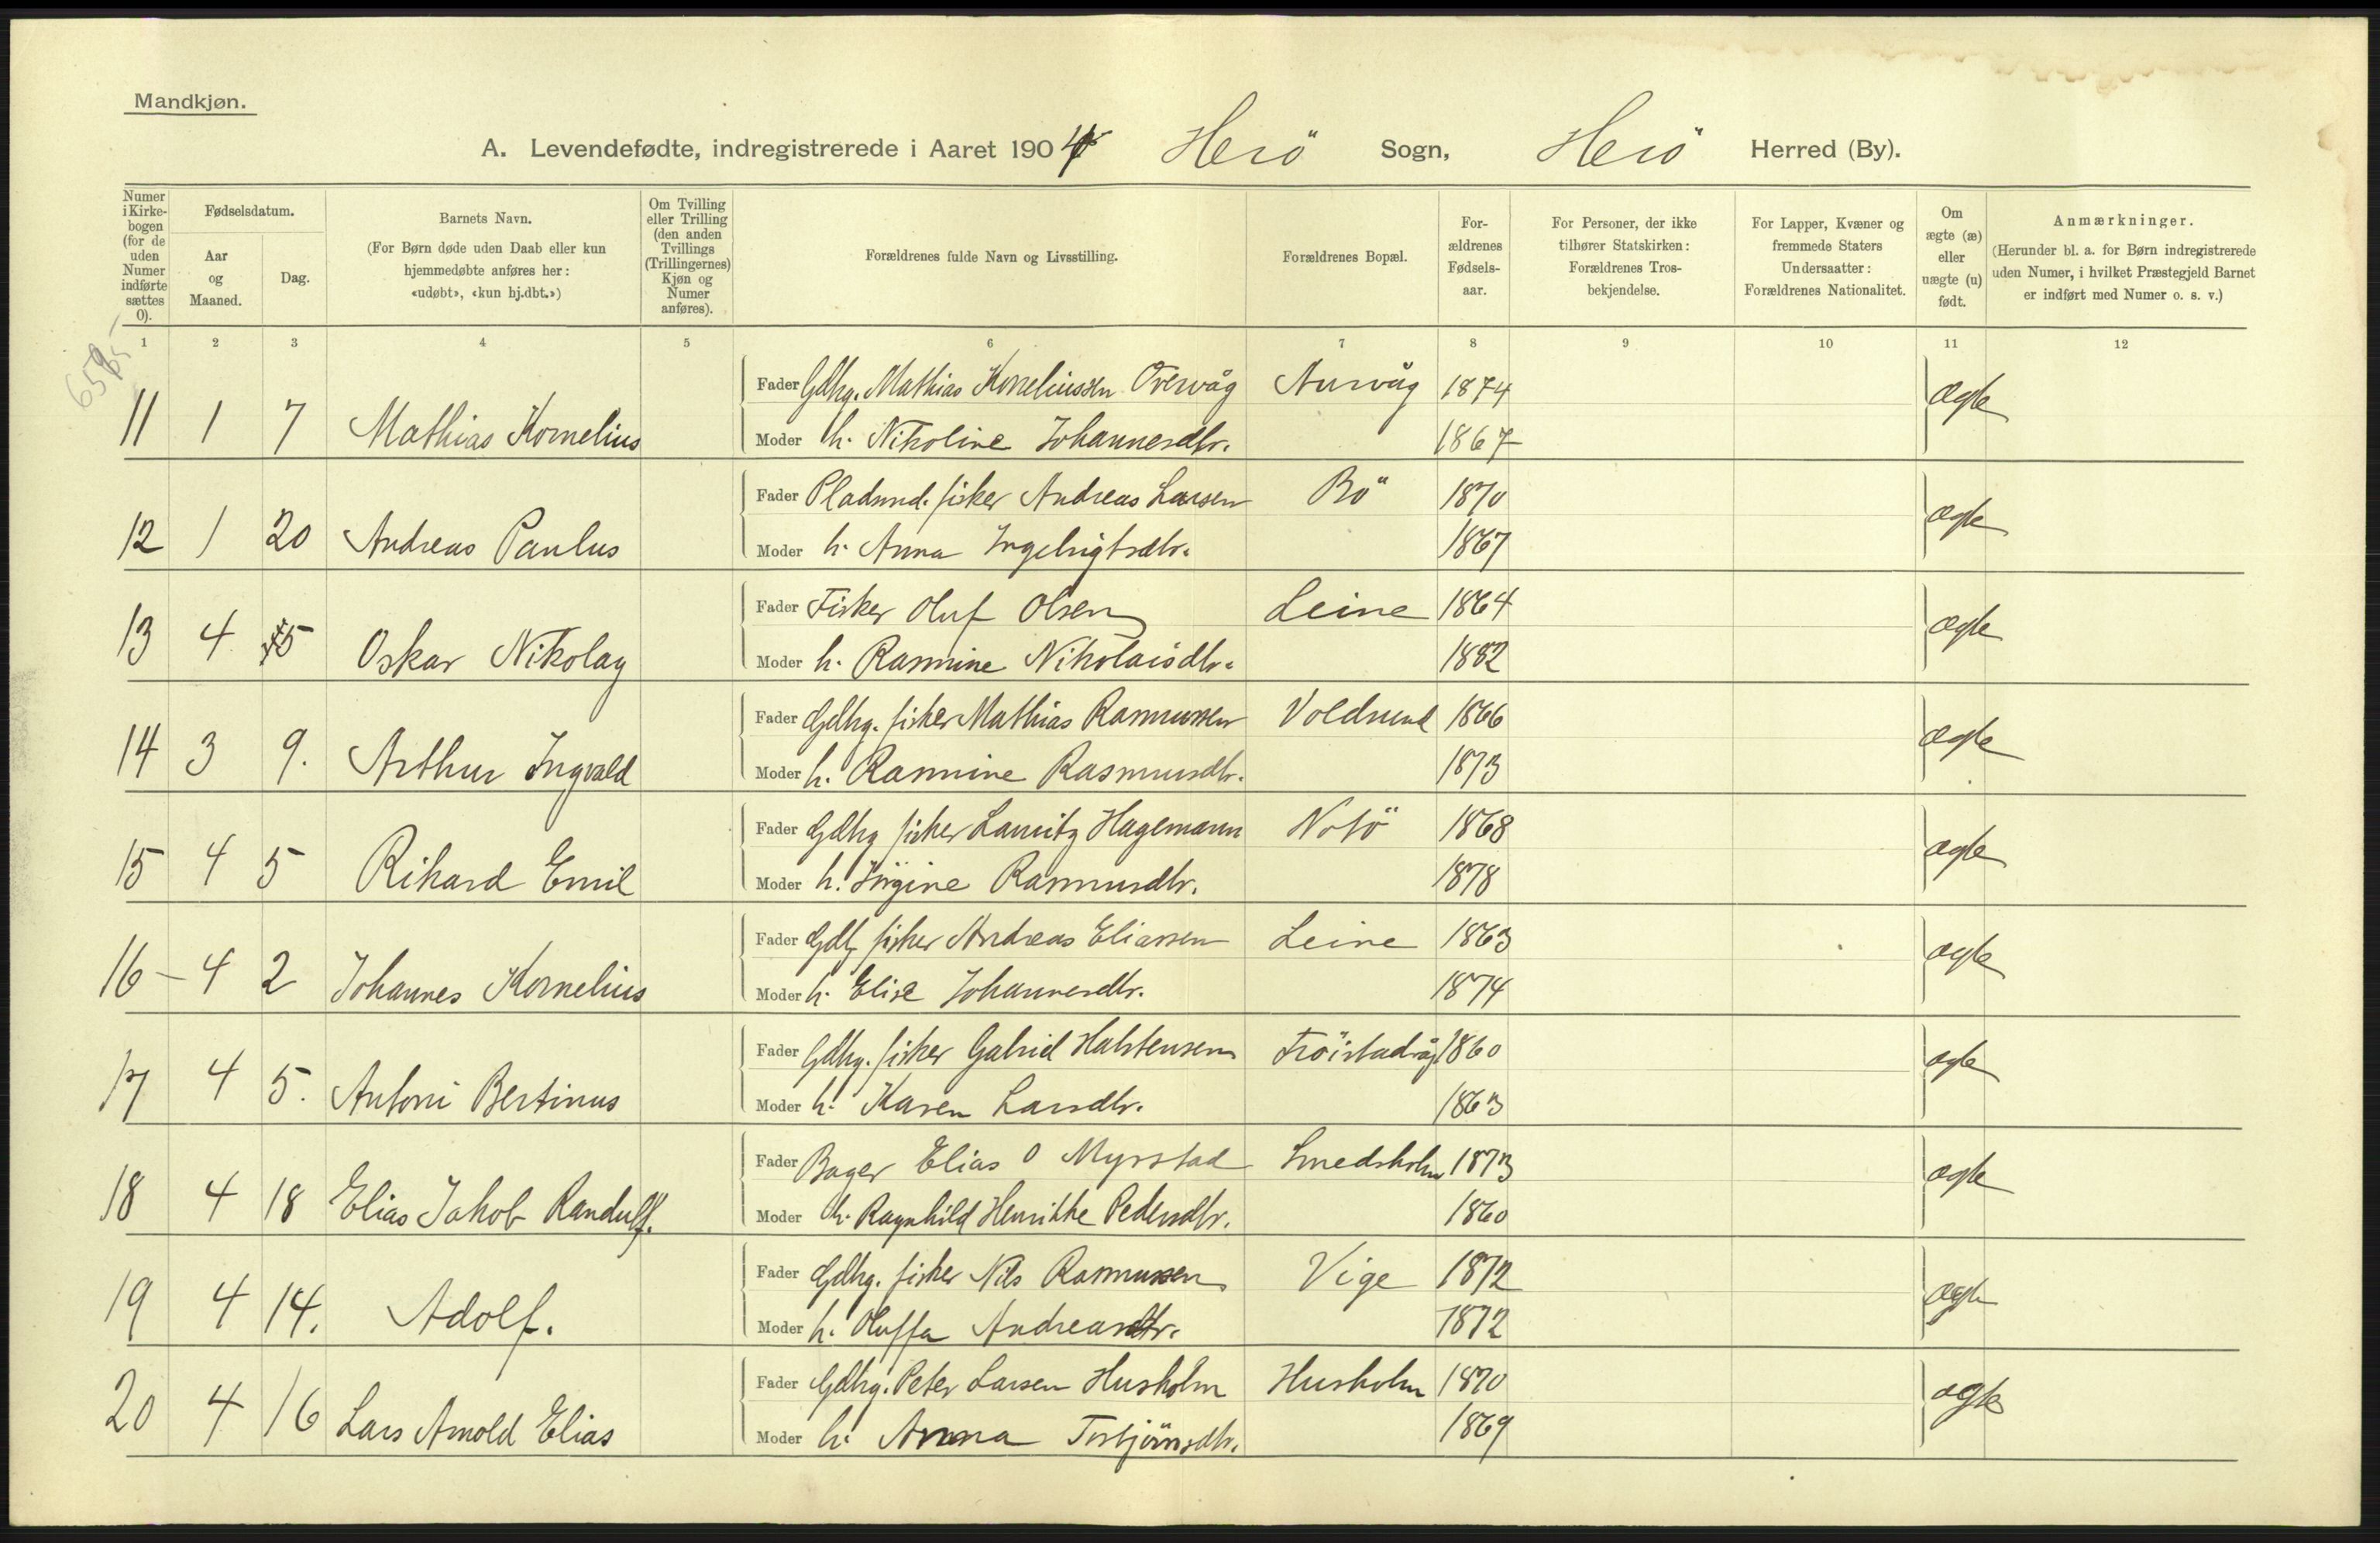 Mandkjøn.
A. Levendefødte, indregistrerede i Aaret 1904 Herö Sogn, Herö Herred (By).
Numer i Kirkebogen (for de uden Numer indførte sættes 0).
Fødselsdatum.
Aar og Maaned.
Dag.
Barnets Navn.
(For Børn døde uden Daab eller kun hjemmedøbte anføres her: «udøbt», «kun hj.dbt.»)
Om Tvilling eller Trilling (den anden Tvillings (Trillingernes) Kjøn og Numer anføres).
Forældrenes fulde Navn og Livsstilling.
Forældrenes Bopæl.
Forældrenes Fødselsaar.
For Personer, der ikke tilhører Statskirken: Forældrenes Trosbekjendelse.
For Lapper, Kvæner og fremmede Staters Undersaatter: Forældrenes Nationalitet.
Om ægte (æ) eller uægte (u) født.
Anmærkninger.
(Herunder bl. a. for Børn indregistrerede uden Numer, i hvilket Præstegjeld Barnet er indført med Numer o. s. v.)
1 2 3 4 5 6 7 8 9 10 11 12
Fader Gdbrg. Mathias Korneliussen Overvåg Aurvåg 1874 ægte
11 1 7 Mathias Kornelius Moder h. Nikoline Johannesdtr. 1867
Fader Pladsmd. fisker Andreas Larsen Bö 1870 ægte
12 1 20 Andreas Paulus Moder h. Anna Ingebrigtsdtr. 1867
Fader Fisker Oluf Olsen Leine 1864 ægte
13 4 5 Oskar Nikolay Moder h. Rasmine Nikolaisdtr. 1882
Fader Gdbrg. fisker Mathias Rasmussen Voldsund 1866 ægte
14 3 9. Arthur Ingvald Moder h. Rasmine Rasmusdtr. 1873
Fader Gdbrg fisker Lauritz Hagemann Notö 1868 ægte
15 4 5 Rikard Emil Moder h. Jörgine Rasmusdtr. 1878
Fader Gdb fisker Andreas Eliassen Leine 1863 ægte
16 4 2 Johannes Kornelius Moder h. Elise Johannesdtr. 1874
Fader Gdbrg. fisker Gabriel Halstensen Fröistadvåg 1860 ægte
17 4 5. Antoni Bertinus Moder h. Karen Larsdtr. 1863
Fader Bager Elias O Myrstad Smedsholm 1873 ægte
18 4 18 Elias Jakob Randulf. Moder h. Ragnhild Henrikke Pedersdtr. 1860
Fader Gdbrg. fisker Nils Rasmussen Vige 1872 ægte
19 4 14. Adolf. Moder h. Oluffa Andreasdtr. 1872
Fader Gdbrg. Peter Larsen Husholm Husholm 1870 ægte
20 4 16 Lars Arnold Elias Moder h. Anna Torbjörnsdtr. 1869